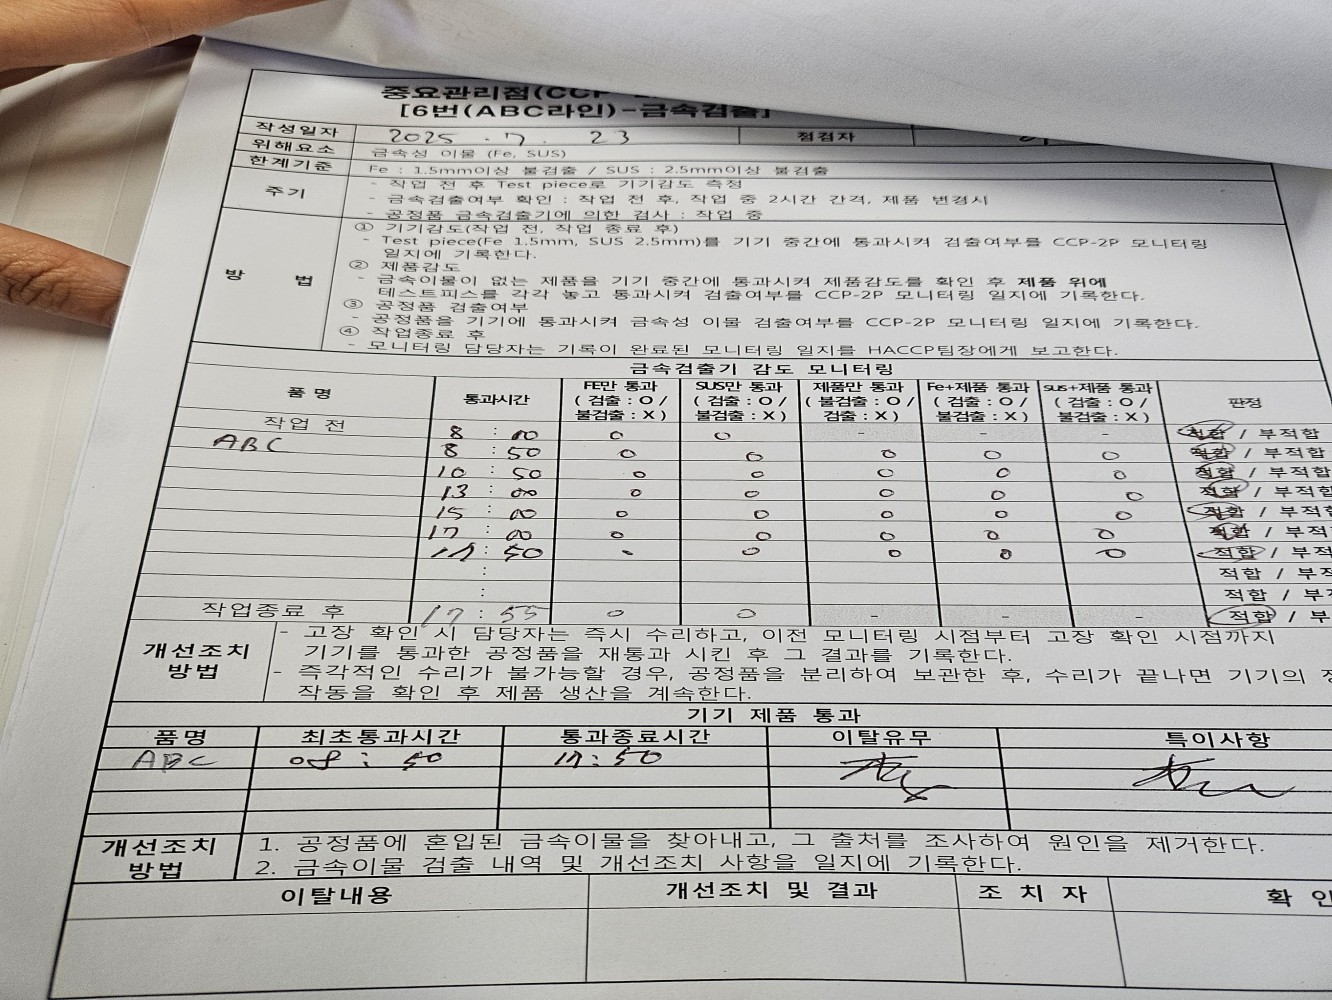 중요관리점(CCP
[6번(ABC라인)-금속검출]
작성일자 2025 . 7 . 23 점검자
위해요소 금속성 이물 (Fe, SUS)
한계기준 Fe : 1.5mm이상 불검출 / SUS : 2.5mm이상 불검출
주기
- 작업 전 후 Test piece로 기기감도 측정
- 금속검출여부 확인 : 작업 전 후, 작업 중 2시간 간격, 제품 변경시
- 공정품 금속검출기에 의한 검사 : 작업 중
방 법
① 기기감도(작업 전, 작업 종료 후)
- Test piece(Fe 1.5mm, SUS 2.5mm)를 기기 중간에 통과시켜 검출여부를 CCP-2P 모니터링
일지에 기록한다.
② 제품감도
- 금속이물이 없는 제품을 기기 중간에 통과시켜 제품감도를 확인 후 제품 위에
테스트피스를 각각 놓고 통과시켜 검출여부를 CCP-2P 모니터링 일지에 기록한다.
③ 공정품 검출여부
- 공정품을 기기에 통과시켜 금속성 이물 검출여부를 CCP-2P 모니터링 일지에 기록한다.
④ 작업종료 후
- 모니터링 담당자는 기록이 완료된 모니터링 일지를 HACCP팀장에게 보고한다.
금속검출기 감도 모니터링
품 명 통과시간 FE만 통과 (검출 : O / 불검출 : X) SUS만 통과 (검출 : O / 불검출 : X) 제품만 통과 (불검출 : O / 검출 : X) Fe+제품 통과 (검출 : O / 불검출 : X) sus+제품 통과 (검출 : O / 불검출 : X) 판정
작업 전 8 : 00 O O - - - 적합 / 부적합
ABC 8 : 50 O O O O O 적합 / 부적합
10 : 50 O O O O O 적합 / 부적합
13 : 00 O O O O O 적합 / 부적합
15 : 00 O O O O O 적합 / 부적합
17 : 00 O O O O O 적합 / 부적
17 : 50 O O O O O 적합 / 부적
: 적합 / 부적
: 적합 / 부
작업종료 후 17 : 55 O O - - - 적합 / 부
개선조치 방법
- 고장 확인 시 담당자는 즉시 수리하고, 이전 모니터링 시점부터 고장 확인 시점까지
기기를 통과한 공정품을 재통과 시킨 후 그 결과를 기록한다.
- 즉각적인 수리가 불가능할 경우, 공정품을 분리하여 보관한 후, 수리가 끝나면 기기의
작동을 확인 후 제품 생산을 계속한다.
기기 제품 통과
품명 최초통과시간 통과종료시간 이탈유무 특이사항
ABC 08 : 50 17 : 50
개선조치 방법
1. 공정품에 혼입된 금속이물을 찾아내고, 그 출처를 조사하여 원인을 제거한다.
2. 금속이물 검출 내역 및 개선조치 사항을 일지에 기록한다.
이탈내용 개선조치 및 결과 조 치 자 확 인